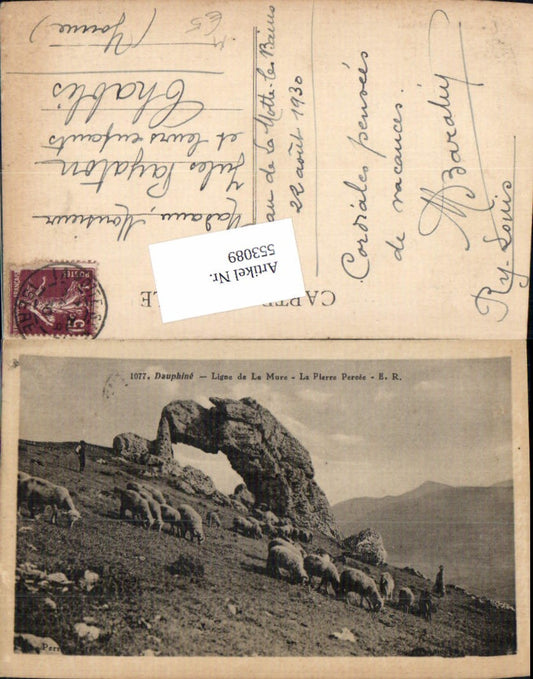 Madame, Monsieur
Jules Payaton
et leurs enfants
Chablis
(Yonne)
de la Motte-les-Bains
22 août 1930
Cordiales pensées
de vacances.
CARTE
LE
POSTES
15
Artikel Nr.
553089
1077. Dauphiné — Ligne de La Mure - La Pierre Percée - E. R.